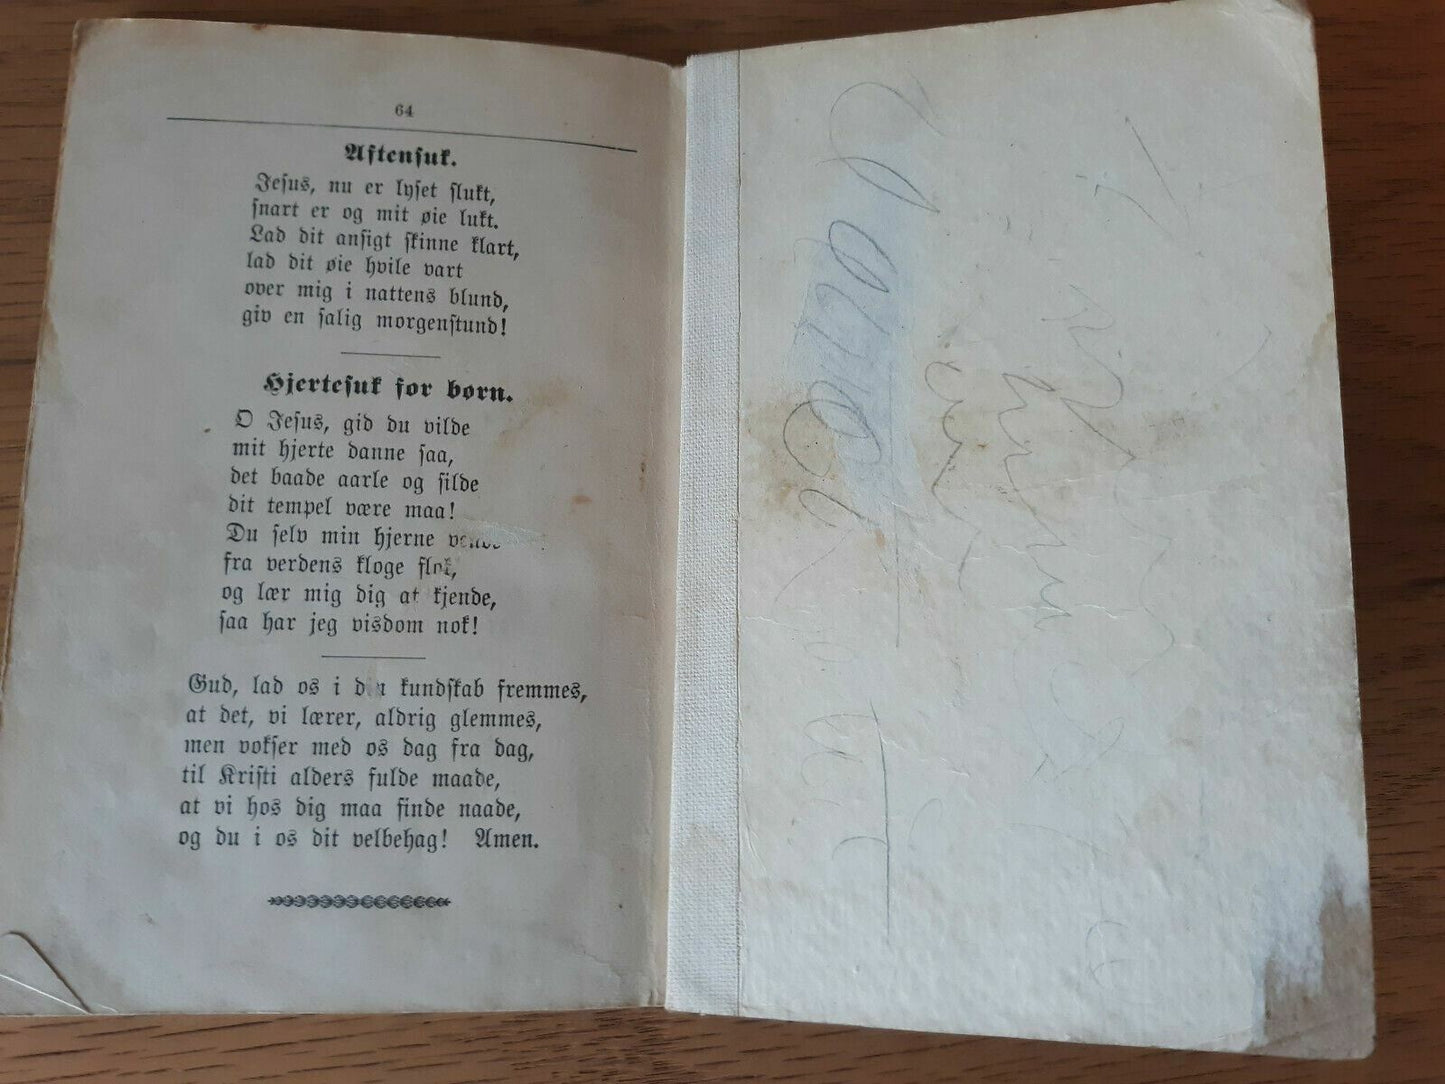 64
Aftensuk.
Jesus, nu er lyset slukt,
snart er og mit øie lukt.
Lad dit ansigt skinne klart,
lad dit øie hvile vart
over mig i nattens blund,
giv en salig morgenstund!
Hjertesuk for børn.
O Jesus, gid du vilde
mit hjerte danne saa,
det baade aarle og silde
dit tempel være maa!
Du selv min hjerne
fra verdens kloge flok,
og lær mig dig at kjende,
saa har jeg visdom nok!
Gud, lad os i din kundskab fremmes,
at det, vi lærer, aldrig glemmes,
men vokser med os dag fra dag,
til Kristi alders fulde maade,
at vi hos dig maa finde naade,
og du i os dit velbehag! Amen.